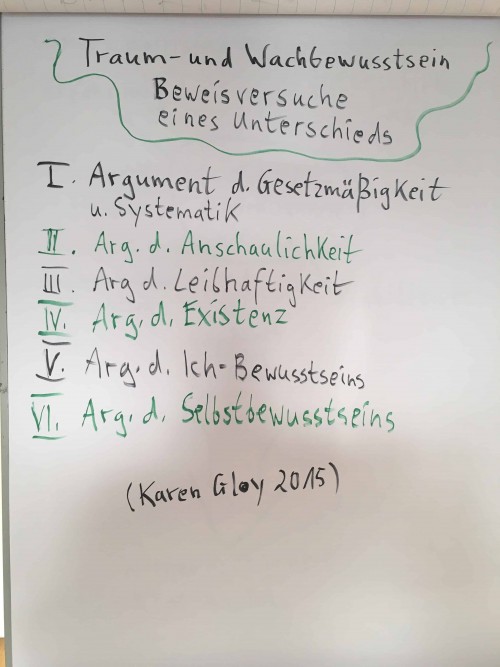 Traum- und Wachbewusstsein
Beweisversuche
eines Unterschieds
I. Argument d. Gesetzmäßigkeit
u. Systematik
II. Arg. d. Anschaulichkeit
III. Arg d. Leibhaftigkeit
IV. Arg. d. Existenz
V. Arg. d. Ich-Bewusstseins
VI. Arg. d. Selbstbewusstseins
(Karen Gloy 2015)